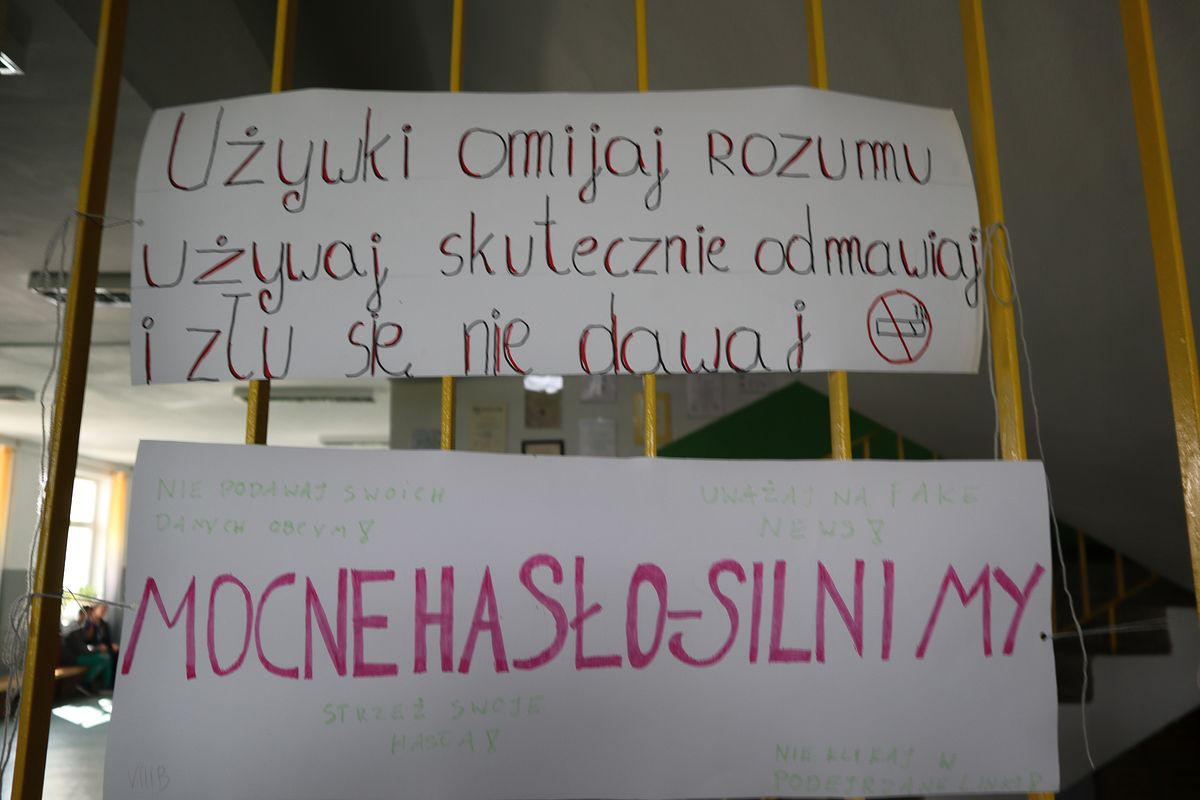 Używki omijaj ROZUMU
używaj skutecznie odmawiaj
i złu się nie dawaj
NIE PODAWAJ SWOICH
DANYCH OBCYM!
UWAŻAJ NA FAKE
NEWS!
MOCNE HASŁO-SILNI MY
STRZEŻ SWOJE
HASŁA!
NIE KLIKAJ W
PODEJRZANE LINKI!
VIIIB